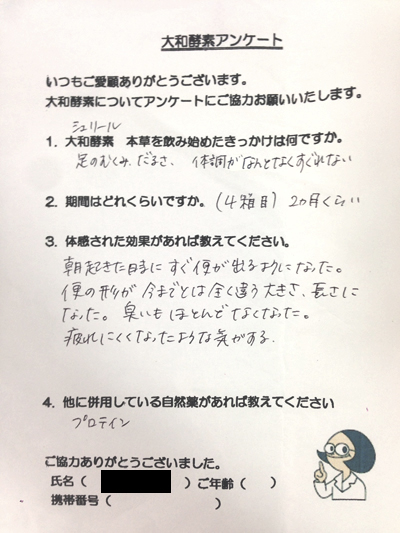 大和酵素アンケート
いつもご愛願ありがとうございます。
大和酵素についてアンケートにご協力お願いいたします。
シュリール
1. 大和酵素 本草を飲み始めたきっかけは何ですか。
足のむくみ、だるさ、 体調がなんとなくすぐれない
2. 期間はどれくらいですか。(4箱目) 2ヵ月くらい
3. 体感された効果があれば教えてください。
朝起きた時にすぐ便が出るようになった。
便の形が今までとは全く違う大きさ、長さに
なった。臭いもほとんどなくなった。
疲れにくくなったような気がする。
4. 他に併用している自然薬があれば教えてください
プロテイン
ご協力ありがとうございました。
氏名( )ご年齢( )
携帯番号( )